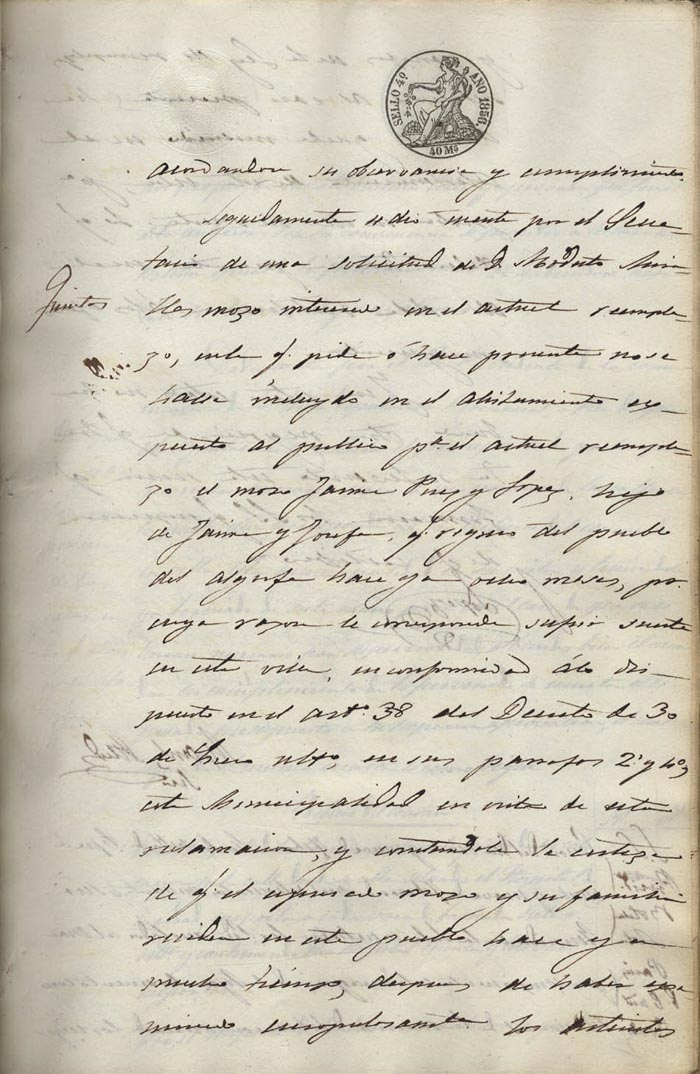 SELLO 4º AÑO 1856.
40 Ms
acordandose su observancia y cumplimiento
Seguidamente se dio cuenta por el Secre-
tario de una solicitud de D. Modesto Mira-
lles mozo interesado en el actual reempla-
Quintas
zo, en la q. pide o hace presente no se
halla incluydo en el alistamiento ex-
puesto al publico pª el actual reempla-
zo el mozo Jaime Puig y Lopez, hijo
de Jaime y Josefa, q. vegno del pueblo
del algorfa hace ya ocho meses, por
cuya razon le corresponde sufrir suerte
en esta villa, en conformidad álo dis-
puesto en el artº. 38 del Decreto de 30
de Enero ultº, en sus parrafos 2º y 4º, y
esta Municipalidad en vista de esta
reclamacion, y constandole la certeza
de q. el espresado mozo y su familia
residen en este pueblo hace ya
mucho tiempo, despues de haber exa-
minado escrupulosamte. los articulos